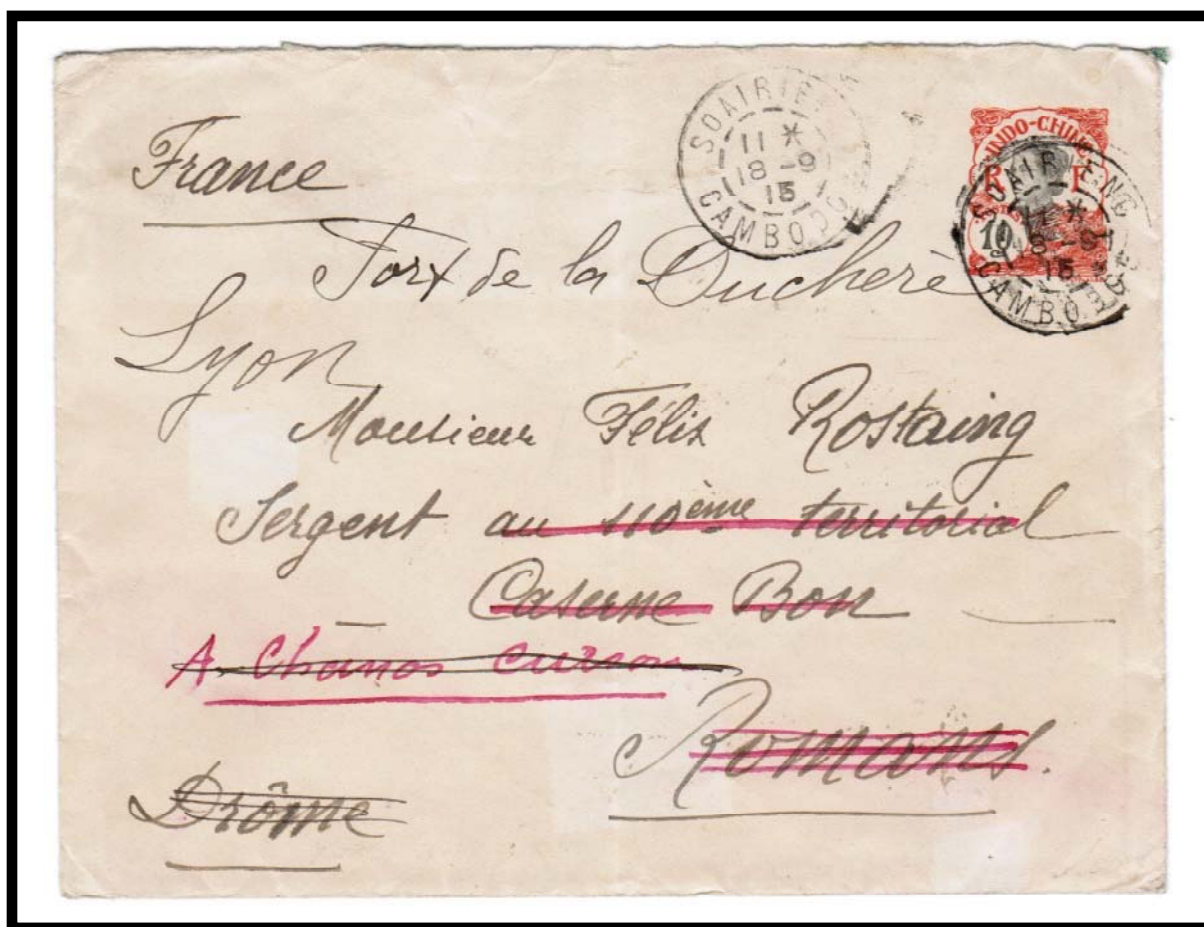 SOAIRIE
11 *
18 -9
15
CAMBODG
INDO-CHIN
R F
10
SOAIRIENG
11 *
18 -9
15
CAMBODGE
France
Fort de la Ducherè
Lyon
Monsieur Félix Rostaing
Sergent au 110ème territorial
Caserne Bon
A Chanos Curson
Romans.
Drôme